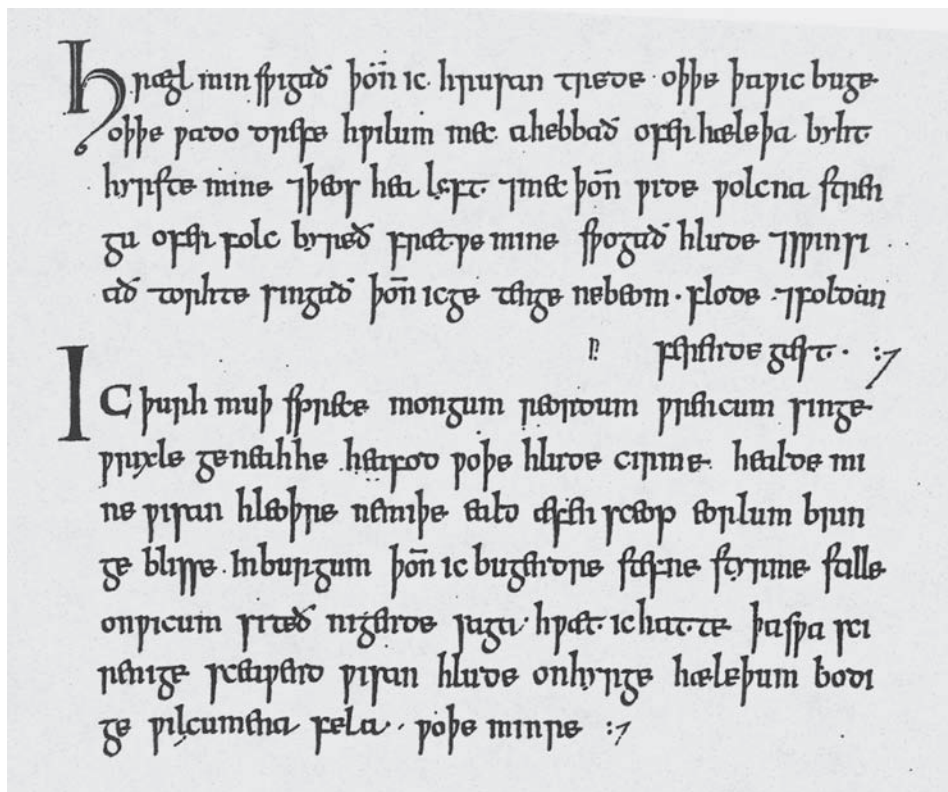 Hrægl min sƿigað þon̄ ic hrusan trede · oþþe þaƿic buge
oþþe ƿado drefe hƿilum mec ahebbað ofer hæleþa byht
hyrste mine ⁊þeos hea lyft ⁊mec þon̄ ƿide ƿolcna stren
gu ofer folc byreð frætƿe mine sƿogað hlude ⁊sƿinsi
að torhte singað þon̄ icge tenge nebeom · flode ⁊foldan
ferende gæst · :⁊
IC þurh muþ sprece mongum reordum ƿrencum singe
ƿrixle geneahhe heafod ƿoþe hlude cirme healde mi
ne ƿisan hleoþre nemiþe eald æfen sceop eorlum brin
ge blisse inburgum þon̄ ic bugendre stefne styrme stille
onƿicum siteð nigende saga hƿæt ichatte þasƿa sci
renige sceaƿend ƿisan hlude onhyrge hæleþum bodi
ge ƿilcumena fela · ƿoþe minre :⁊